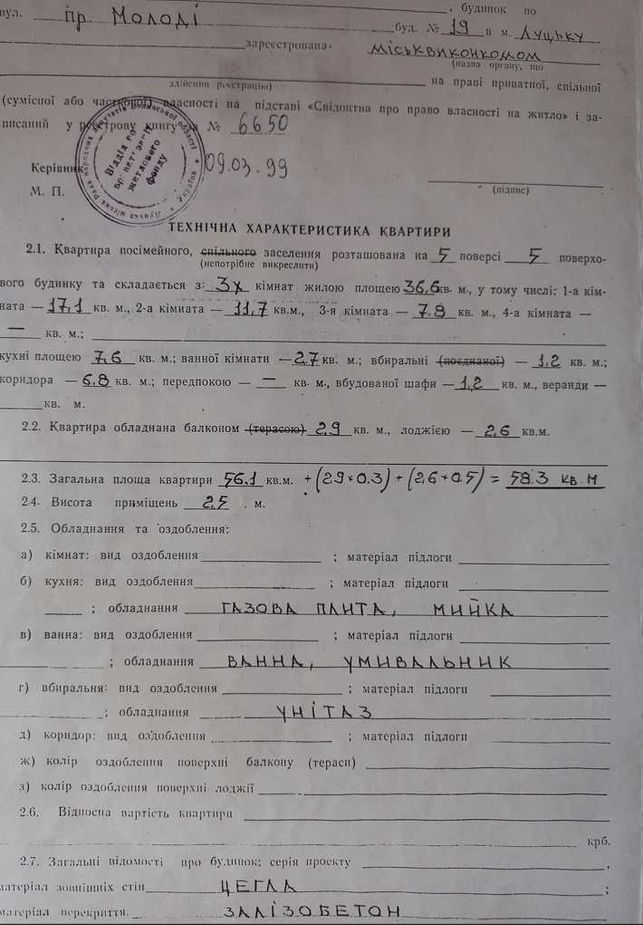 , будинок по
вул. пр. Молоді буд. № 19 в м. Луцьку
зареєстрована міськвиконкомом
(назва органу, що
здійснив реєстрацію) на праві приватної, спільної
(сумісної або часткової) власності на підставі «Свідоцтва про право власності на житло» і за-
писаний у реєстрову книгу за № 6650
Керівник 09.03.99
М. П. (підпис)
ТЕХНІЧНА ХАРАКТЕРИСТИКА КВАРТИРИ
2.1. Квартира посімейного, спільного заселення розташована на 5 поверсі 5 поверхо-
(непотрібне викреслити)
вого будинку та складається з: 3х кімнат жилою площею 36,6 кв. м., у тому числі: 1-а кім-
ната — 17,1 кв. м., 2-а кімната — 11,7 кв.м., 3-я кімната — 7.8 кв. м., 4-а кімната —
— кв. м.;
кухні площею 7,6 кв. м.; ванної кімнати — 2,7 кв. м.; вбиральні (поєднаної) — 1,2 кв. м.;
коридора — 6,8 кв. м.; передпокою — — кв. м., вбудованої шафи — 1,2 кв. м., веранди —
кв. м.
2.2. Квартира обладнана балконом (терасою) 2,9 кв. м., лоджією — 2,6 кв.м.
2.3. Загальна площа квартири 56.1 кв.м. + (2.9 * 0.3) + (2,6 * 0.5) = 58.3 кв м
2.4. Висота приміщень 2,5 . м.
2.5. Обладнання та оздоблення:
а) кімнат: вид оздоблення ; матеріал підлоги
б) кухня: вид оздоблення ; матеріал підлоги
; обладнання ГАЗОВА ПЛИТА, МИЙКА
в) ванна: вид оздоблення ; матеріал підлоги
; обладнання ВАННА, УМИВАЛЬНИК
г) вбиральня: вид оздоблення ; матеріал підлоги
; обладнання УНІТАЗ
д) коридор: вид оздоблення ; матеріал підлоги
ж) колір оздоблення поверхні балкону (тераси)
з) колір оздоблення поверхні лоджії
2.6. Відносна вартість квартири
крб.
2.7. Загальні відомості про будинок; серія проекту ,
матеріал зовнішніх стін ЦЕГЛА ;
матеріал перекриття. ЗАЛІЗОБЕТОН